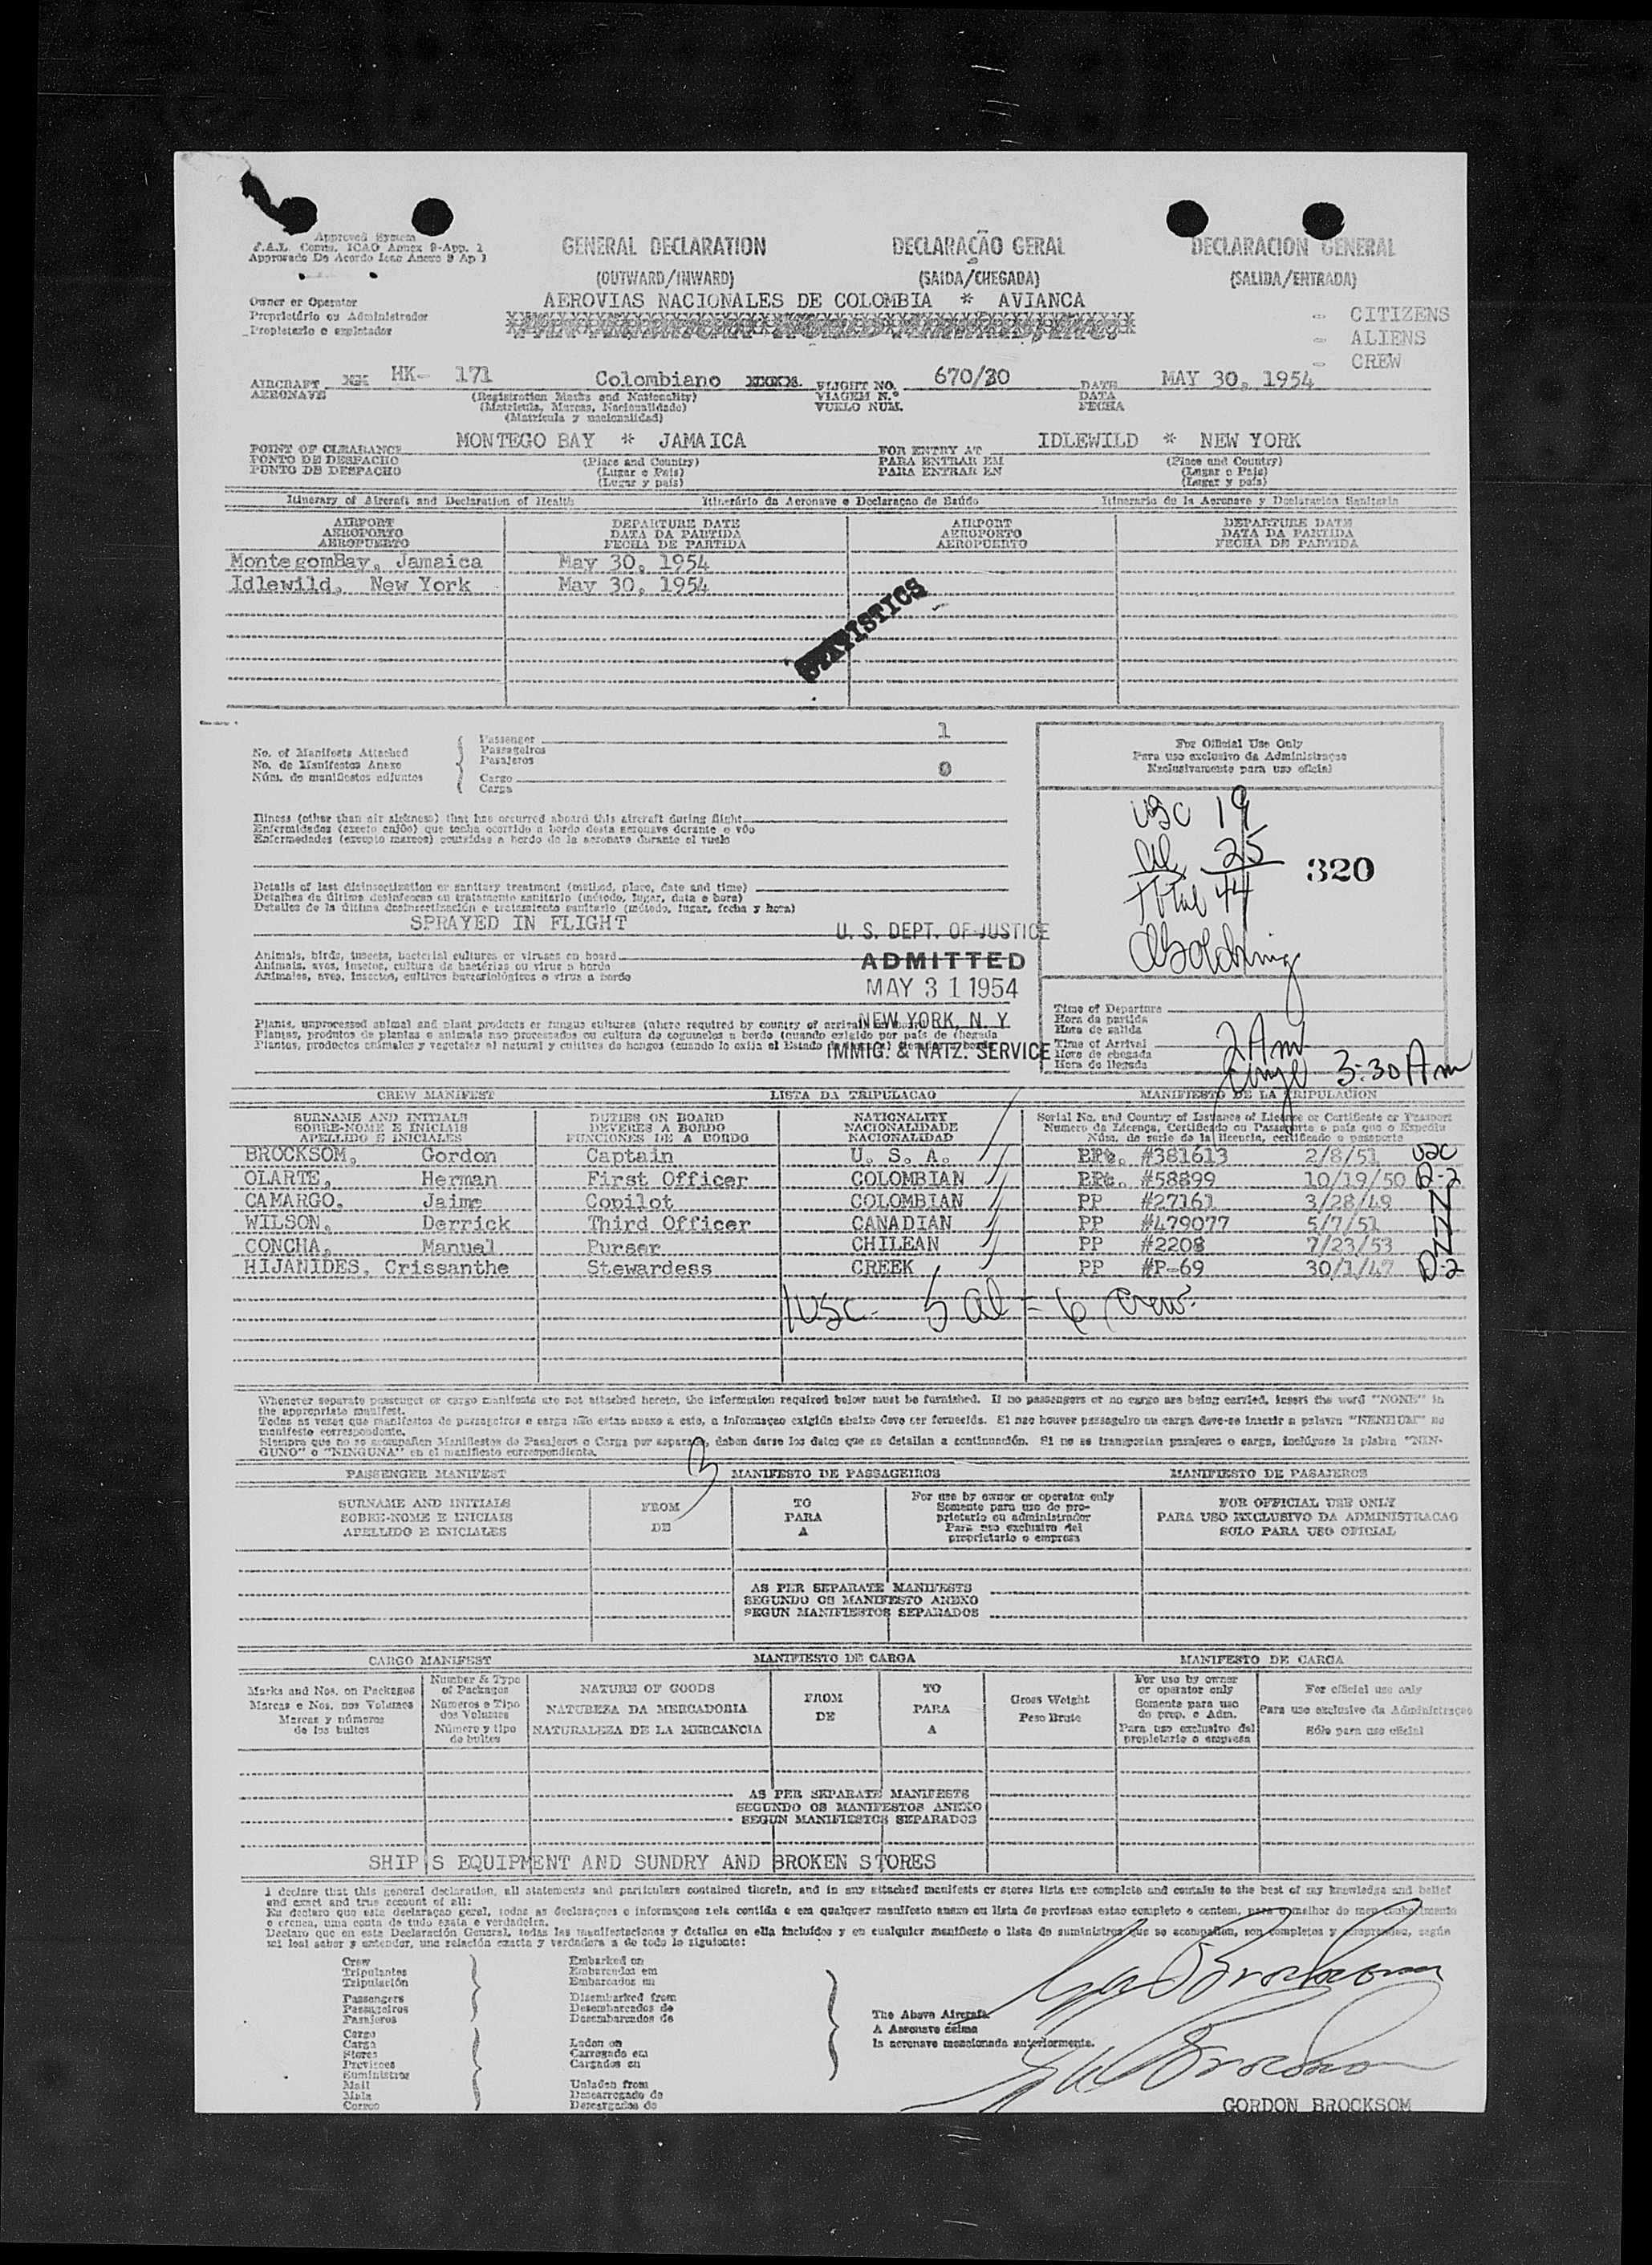 Approved System
F.A.L. Comm. ICAO Annex 9-App. 1
Approvado De Acordo Icao Anexo 9 Ap 1
GENERAL DECLARATION DECLARAÇÃO GERAL DECLARACION GENERAL
(OUTWARD/INWARD) (SAIDA/CHEGADA) (SALIDA/ENTRADA)
Owner or Operator
Proprietário ou Administrador
Propietario o explotador
AEROVIAS NACIONALES DE COLOMBIA * AVIANCA
- CITIZENS
- ALIENS
- CREW
AIRCRAFT HK- 171 Colombiano FLIGHT NO. 670/30 DATE MAY 30, 1954
AERONAVE (Registration Marks and Nationality) VIAGEM N.º DATA
(Matricula, Marcas, Nacionalidade) VUELO NUM. FECHA
(Matricula y nacionalidad)
POINT OF CLEARANCE MONTEGO BAY * JAMAICA FOR ENTRY AT IDLEWILD * NEW YORK
PONTO DE DESPACHO (Place and Country) PARA ENTRAR EM (Place and Country)
PUNTO DE DESPACHO (Lugar e Pais) PARA ENTRAR EN (Lugar e Pais)
(Lugar y pais) (Lugar y pais)
Itinerary of Aircraft and Declaration of Health Itinerário da Aeronave e Declaraçao de Saúde Itinerario de la Aeronave y Declaracion Sanitaria
AIRPORT DEPARTURE DATE AIRPORT DEPARTURE DATE
AEROPORTO DATA DA PARTIDA AEROPORTO DATA DA PARTIDA
AEROPUERTO FECHA DE PARTIDA AEROPUERTO FECHA DE PARTIDA
MontegomBay, Jamaica May 30, 1954
Idlewild, New York May 30, 1954
STATISTICS
No. of Manifests Attached
No. de Manifestos Anexo
Núm. de manifiestos adjuntos
Passenger 1
Passageiros
Pasajeros
Cargo 0
Carga
For Official Use Only
Para uso exclusivo da Administraçao
Exclusivamente para uso oficial
usc 19
al 25
total 44
320
Illness (other than air sickness) that has occurred aboard this aircraft during flight
Enfermidades (exceto enjôo) que tenha ocorrido a bordo desta aeronave durante o vôo
Enfermedades (excepto mareos) ocurridas a bordo de la aeronave durante el vuelo
Details of last disinsectization or sanitary treatment (method, place, date and time)
Detalhes da última desinfeccao ou tratamento sanitario (método, lugar, data e hora)
Detalles de la última desinsectización o tratamiento sanitario (método, lugar, fecha y hora)
SPRAYED IN FLIGHT
Animals, birds, insects, bacterial cultures or viruses on board
Animais, aves, insetos, cultura de bactérias ou virus a bordo
Animales, aves, insectos, cultivos bacteriológicos o virus a bordo
U. S. DEPT. OF JUSTICE
ADMITTED
MAY 31 1954
NEW YORK, N. Y
IMMIG. & NATZ. SERVICE
Plants, unprocessed animal and plant products or fungus cultures (where required by country of arrival)
Plantas, produtos de plantas e animais nao processados ou cultura de cogumelos a bordo (quando exigido por pais de chegada
Plantas, productos animales y vegetales al natural y cultivos de hongos (cuando lo exija el Estado
Time of Departure
Hora da partida
Hora de salida
Time of Arrival
Hora de chegada
Hora de llegada
2 Am
3:30 Am
CREW MANIFEST LISTA DA TRIPULACAO MANIFIESTO DE LA TRIPULACION
SURNAME AND INITIALS DUTIES ON BOARD NATIONALITY Serial No. and Country of Issuance of License or Certificate or Passport
SOBRE-NOME E INICIAIS DEVERES A BORDO NACIONALIDADE Numero da Licença, Certificado ou Passaporte e pais que o Expediu
APELLIDO E INICIALES FUNCIONES DE A BORDO NACIONALIDAD Núm. de serie de la licencia, certificado o pasaporte
BROCKSOM, Gordon Captain U. S. A. #381613 2/8/51 usc
OLARTE, Herman First Officer COLOMBIAN #58899 10/19/50 D-2
CAMARGO. Jaime Copilot COLOMBIAN PP #27161 3/28/49
WILSON, Derrick Third Officer CANADIAN PP #479077 5/7/51
CONCHA, Manuel Purser CHILEAN PP #2208 7/23/53
HIJANIDES, Crissanthe Stewardess CREEK PP #P-69 30/1/47 D-2
1 usc - 5 al = 6 crew.
Whenever separate passenger or cargo manifests are not attached hereto, the information required below must be furnished. If no passengers or no cargo are being carried, insert the word "NONE" in
the appropriate manifest.
Todas as vezes que manifestos de passageiros e carga não estao anexo a este, a informaçao exigida abaixo deve ser fornecida. Si nao houver passageiro ou carga deve-se inserir a palavra "NENHUM" no
manifesto correspondente.
Siempre que no se acompañen Manifiestos de Pasajeros o Carga por separado, deben darse los datos que se detallan a continuación. Si no se transportan pasajeros o carga, inclúyase la plabra "NIN-
GUNO" o "NINGUNA" en el manifiesto correspondiente.
PASSENGER MANIFEST MANIFESTO DE PASSAGEIROS MANIFIESTO DE PASAJEROS
SURNAME AND INITIALS FROM TO For use by owner or operator only FOR OFFICIAL USE ONLY
SOBRE-NOME E INICIAIS DE PARA Somente para uso de pro- PARA USO EXCLUSIVO DA ADMINISTRACAO
APELLIDO E INICIALES A prietario ou administrador SOLO PARA USO OFICIAL
Para uso exclusivo del
proprietario o empresa
AS PER SEPARATE MANIFESTS
SEGUNDO OS MANIFESTO ANEXO
SEGUN MANIFIESTOS SEPARADOS
CARGO MANIFEST MANIFIESTO DE CARGA MANIFESTO DE CARGA
Marks and Nos. on Packages Number & Type of Packages NATURE OF GOODS FROM TO Gross Weight For use by owner or operator only For official use only
Marcas e Nos. nos Volumes Numeros e Tipo dos Volumes NATUREZA DA MERCADORIA DE PARA Peso Bruto Somente para uso do prop. e Adm. Para uso exclusivo da Administraçao
Marcas y números de los bultos Número y tipo de bultos NATURALEZA DE LA MERCANCIA A Para uso exclusivo del propietario o empresa Sólo para uso oficial
AS PER SEPARATE MANIFESTS
SEGUNDO OS MANIFESTOS ANEXO
SEGUN MANIFIESTOS SEPARADOS
SHIP'S EQUIPMENT AND SUNDRY AND BROKEN STORES
I declare that this general declaration, all statements and particulars contained therein, and in any attached manifests or stores lists are complete and contain to the best of my knowledge and belief
and exact and true account of all:
Eu declaro que esta declaraçao geral, todas as declaraçoes e informaçoes nela contida e em qualquer manifesto anexo ou lista de provisoes estao completo e contem, para o melhor do meu conhecimento
e crenca, uma conta de tudo exata e verdadeira.
Declaro que en esta Declaración General, todas las manifestaciones y detalles en ella incluidos y en cualquier manifiesto o lista de suministros que se acompañan, son completos y comprenden, según
mi leal saber y entender, una relación exacta y verdadera a de todo lo siguiente:
Crew
Tripulantes
Tripulación
Passengers
Passageiros
Pasajeros
Cargo
Carga
Stores
Provisoes
Suministros
Mail
Mala
Correo
Embarked on
Embarcados em
Embarcados en
Disembarked from
Desembarcados de
Desembarcados de
Laden on
Carregado em
Cargados en
Unladen from
Descarregado de
Descargados de
The Above Aircraft
A Aeronave ácima
la aeronave mencionada anteriormente.
GORDON BROCKSOM